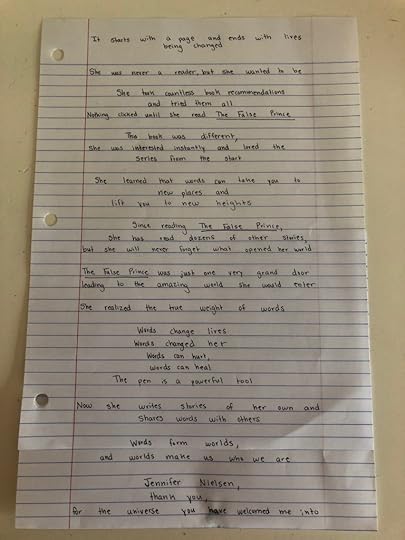 It starts with a page and ends with lives
being changed
She was never a reader, but she wanted to be
She took countless book recommendations
and tried them all
Nothing clicked until she read The False Prince
This book was different,
She was interested instantly and loved the
series from the start
She learned that words can take you to
new places and
lift you to new heights
Since reading The False Prince,
she has read dozens of other stories,
but she will never forget what opened her world
The False Prince was just one very grand door
leading to the amazing world she would enter
She realized the true weight of words
Words change lives
Words changed her
Words can hurt,
words can heal
The pen is a powerful tool
Now she writes stories of her own and
shares words with others
Words form worlds,
and worlds make us who we are
Jennifer Nielsen,
thank you,
for the universe you have welcomed me into